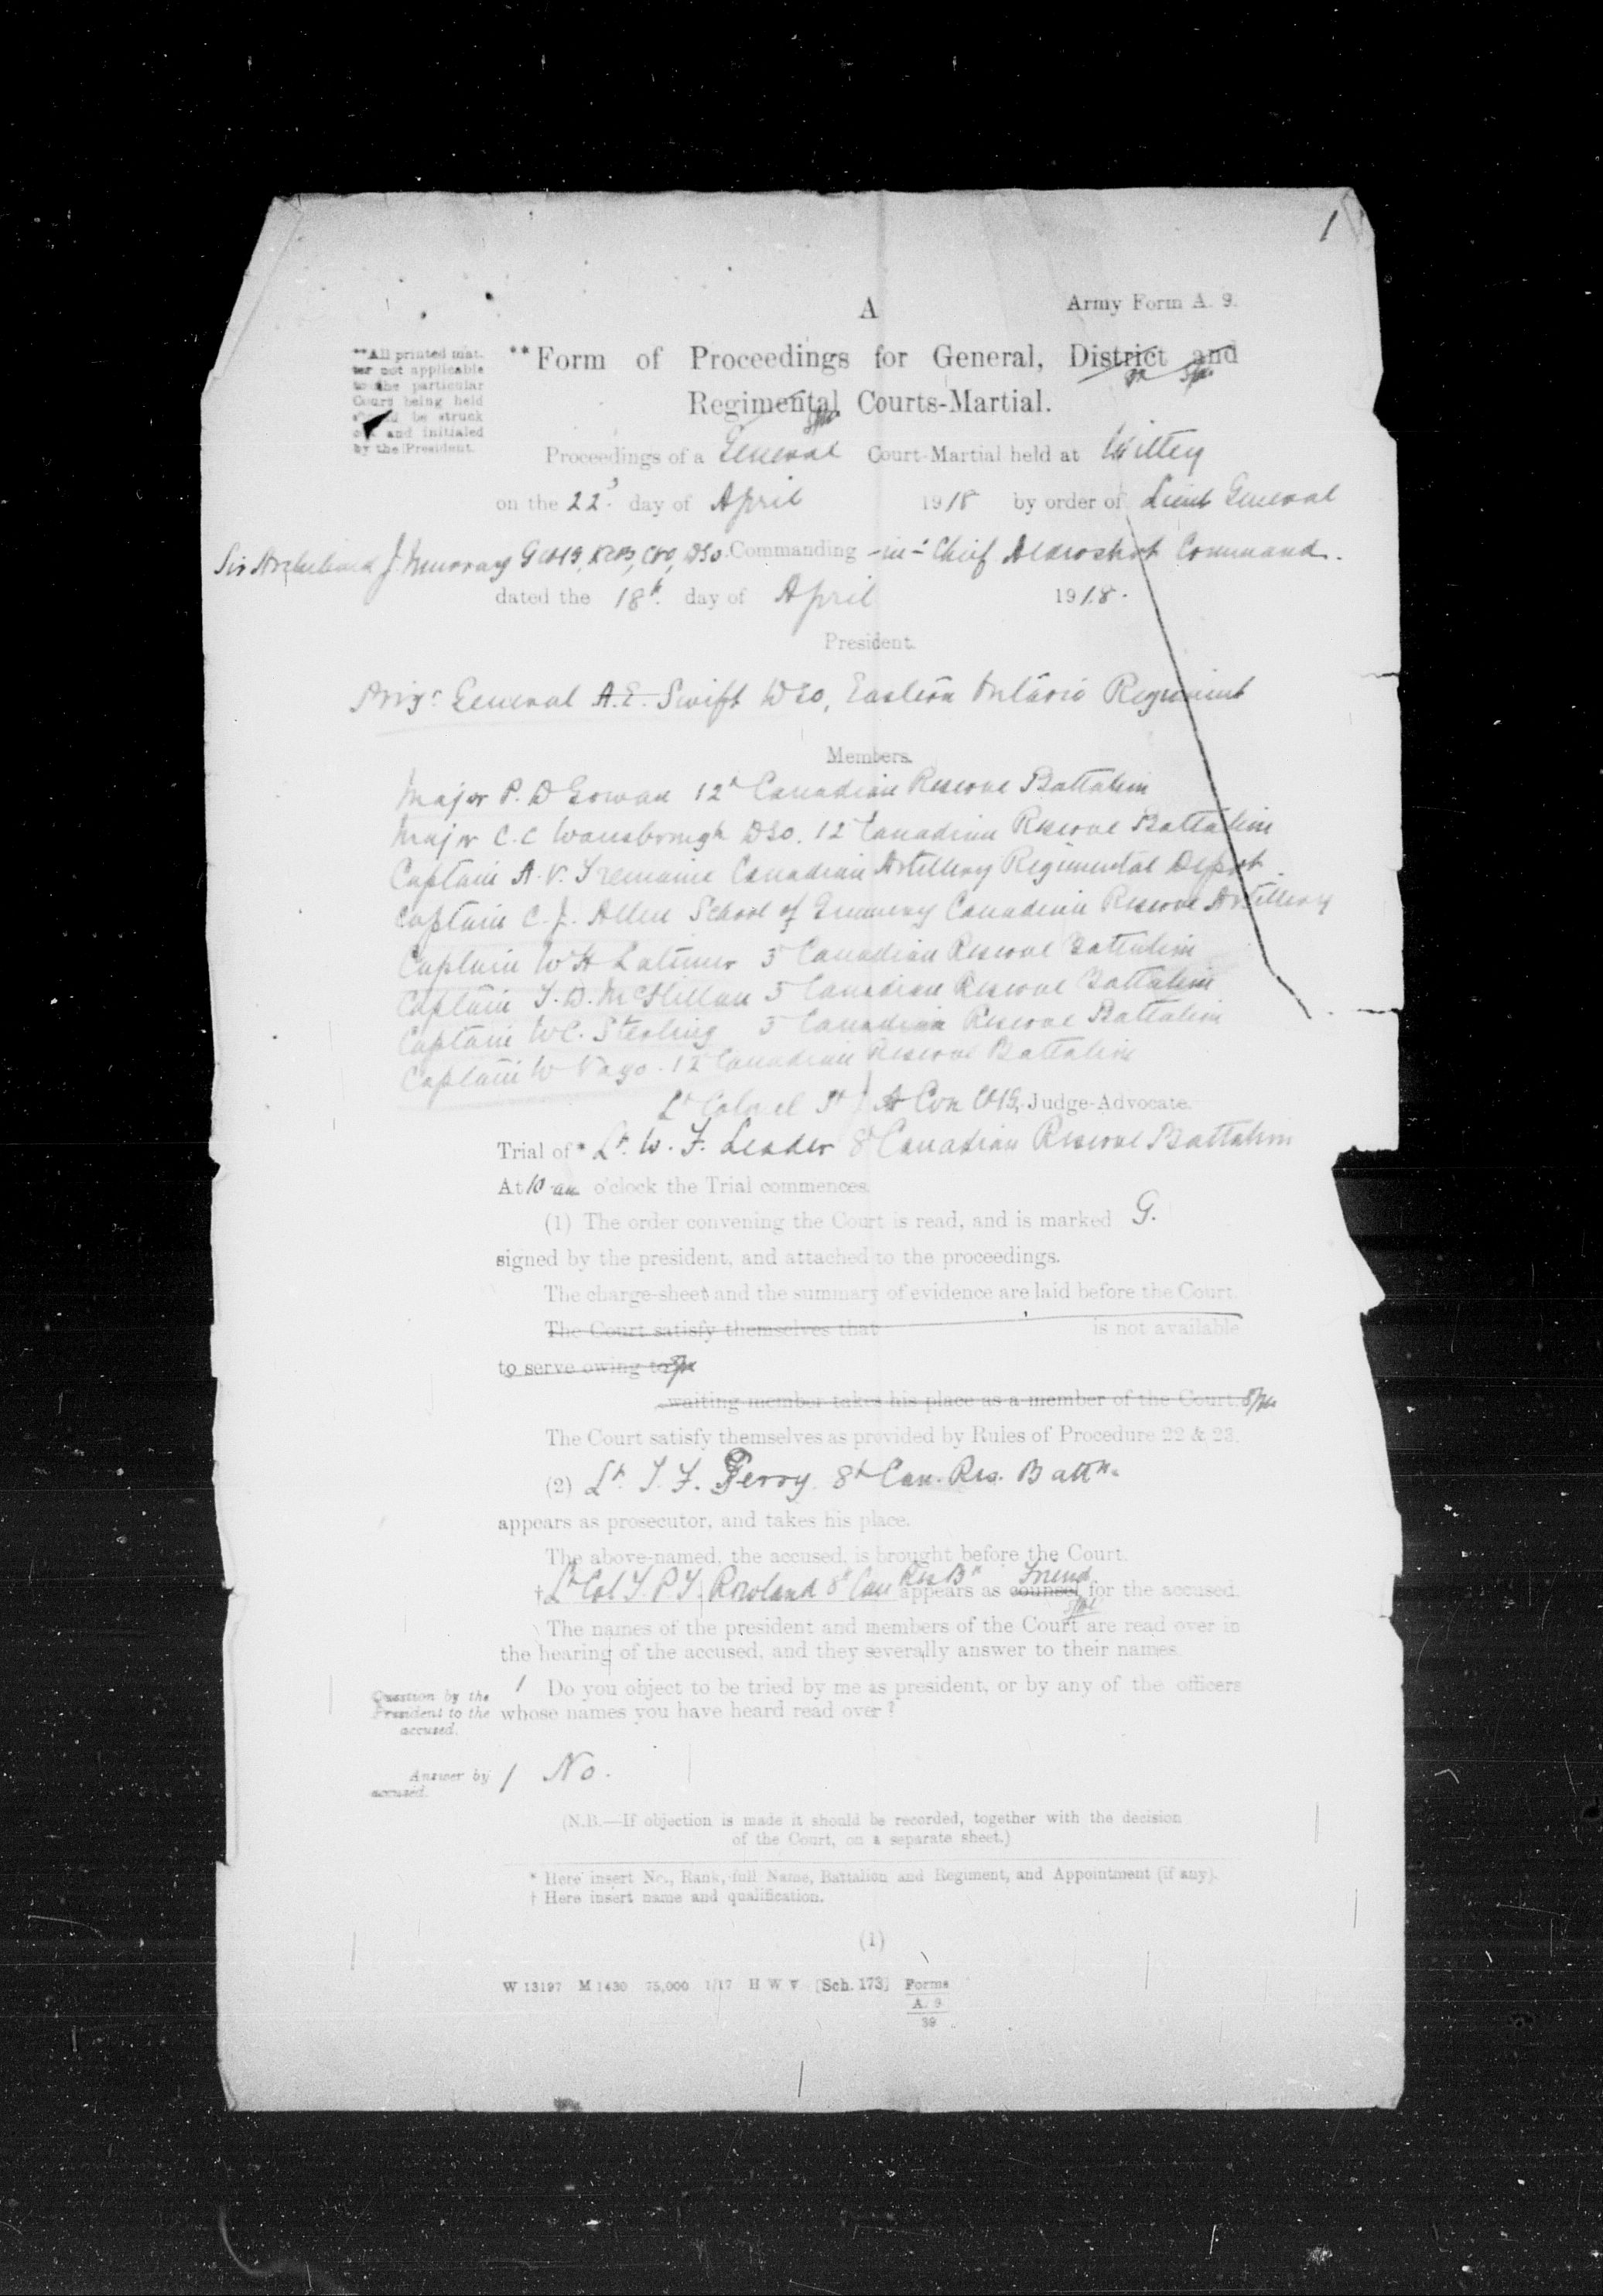 1
A
Army Form A. 9.
**All printed mat-
ter not applicable
to the particular
Court being held
should be struck
out and initialed
by the President.
**Form of Proceedings for General, District and
Regimental Courts-Martial.
Proceedings of a General Court-Martial held at Witley
on the 22d. day of April 1918 by order of Lieut General
Sir Archibald J. Murray GCMG, KCB, CVO, DSO. Commanding -in-Chief Aldershot Command.
dated the 18th. day of April 1918.
President.
Brigr General A.E. Swift DSO, Eastern Ontario Regiment
Members.
Major P. D Gowan 12th Canadian Reserve Battalion
Major C. C Wansbrough DSO. 12 Canadian Reserve Battalion
Captain A. V. Tremaine Canadian Artillery Regimental Depot
Captain C. J. Allen School of Gunnery Canadian Reserve Artillery
Captain W H Latimer 5 Canadian Reserve Battalion
Captain T. D. McMillan 5 Canadian Reserve Battalion
Captain W C. Sterling 5 Canadian Reserve Battalion
Captain W 12 Canadian Reserve Battalion
Lt Colonel CMG, Judge-Advocate.
Trial of * Lt. W. F. Leader 8th Canadian Reserve Battalion
At 10 am o'clock the Trial commences.
(1) The order convening the Court is read, and is marked G.
signed by the president, and attached to the proceedings.
The charge-sheet and the summary of evidence are laid before the Court.
The Court satisfy themselves that is not available
to serve owing to
waiting member takes his place as a member of the Court.
The Court satisfy themselves as provided by Rules of Procedure 22 & 23.
(2) Lt. T. F. Perry. 8th Can. Res. Battn.
appears as prosecutor, and takes his place.
The above-named, the accused, is brought before the Court.
† Lt Col T. P. T. Rowland 8th Can Res Bn appears as counsel Friend for the accused.
The names of the president and members of the Court are read over in
the hearing of the accused, and they severally answer to their names.
Question by the
President to the
accused.
1 Do you object to be tried by me as president, or by any of the officers
whose names you have heard read over?
Answer by
accused.
1 No.
(N.B.—If objection is made it should be recorded, together with the decision
of the Court, on a separate sheet.)
* Here insert No., Rank, full Name, Battalion and Regiment, and Appointment (if any).
† Here insert name and qualification.
(1)
W 13197 M 1430 75,000 1/17 H W V [Sch. 173] Forms
A. 9
39